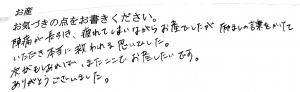 お産
お気づきの点をお書きください。
陣痛が長引き、疲れてしまいながらお産でしたが励ましの言葉をかけて
いただき本当に救われる思いでした。
次がもしあれば、またここでお産したいです。
ありがとうございました。